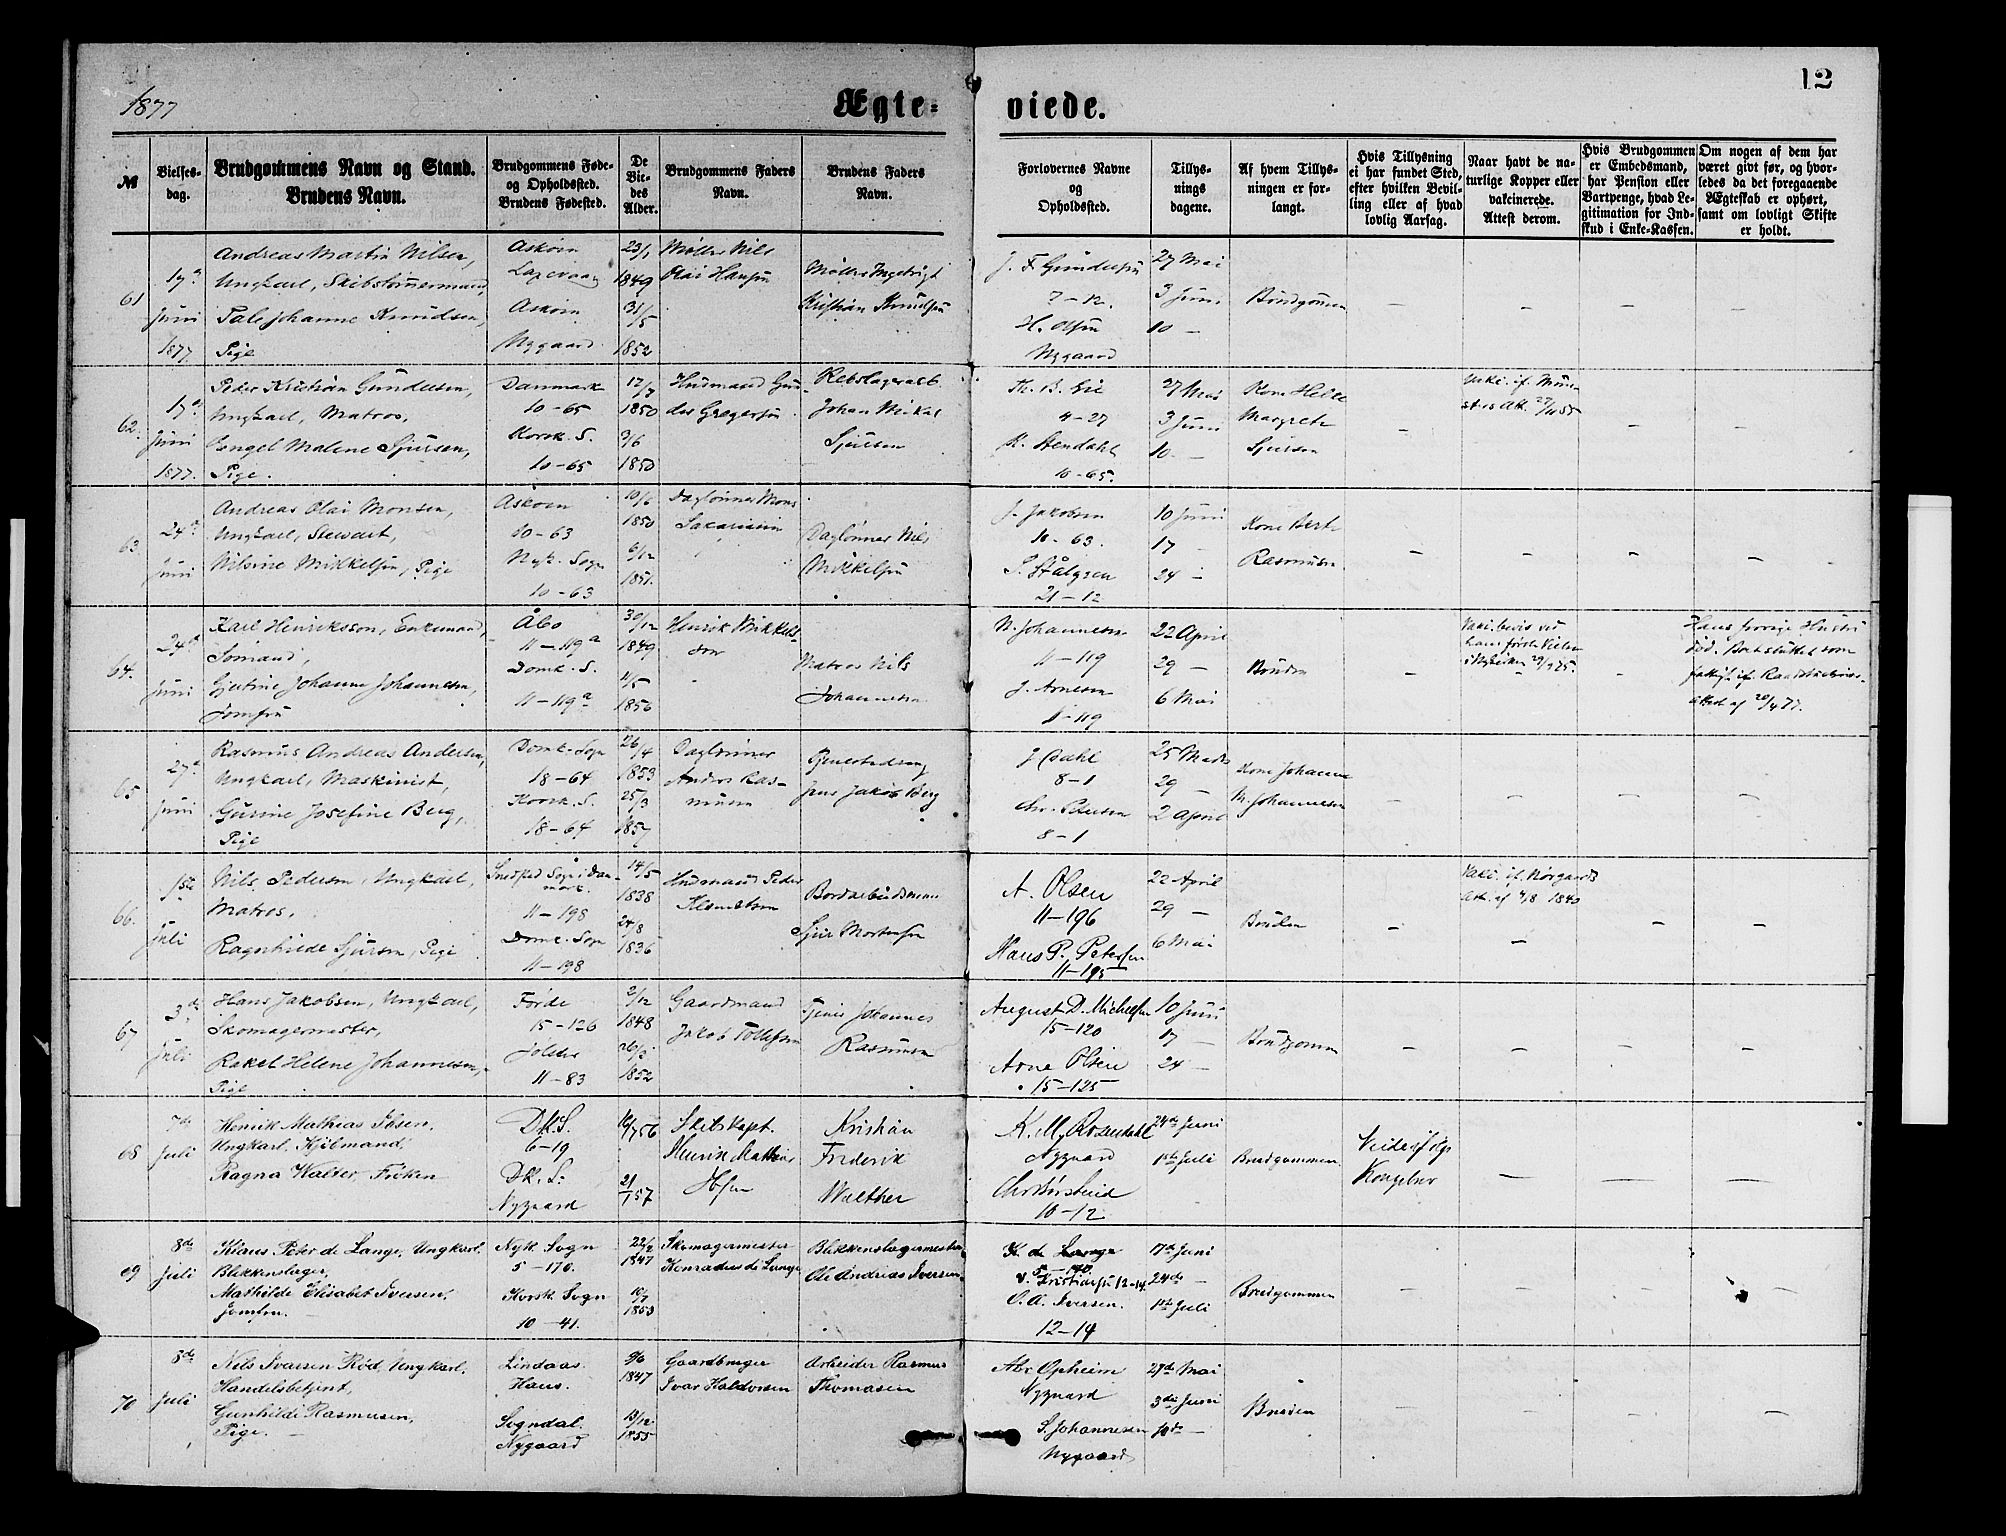 1877
Ægte-
viede.
12
№
Vielses-
dag.
Brudgommens Navn og Stand.
Brudens Navn.
Brudgommens Føde-
og Opholdsted.
Brudens Fødested.
De
Vie-
des
Alder.
Brudgommens Faders
Navn.
Brudens Faders
Navn.
Forlovernes Navne
og
Opholdsted.
Tillys-
nings
dagene.
Af hvem Tillys-
ningen er for-
langt.
Hvis Tillysning
ei har fundet Sted,
efter hvilken Bevil-
ling eller af hvad
lovlig Aarsag.
Naar havt de na-
turlige Kopper eller
vakcinerede.
Attest derom.
Hvis Brudgommen
er Embedsmand,
har Pension eller
Vartpenge, hvad Le-
gitimation for Ind-
skud i Enke-Kassen.
Om nogen af dem har
været givt før, og hvor-
ledes da det foregaaende
Ægteskab er ophørt,
samt om lovligt Skifte
er holdt.
61
17
Juni
1877.
Andreas Martin Nilsen,
Ungkarl, Skibstømmermand,
Johanne Knudsen,
Pige
Askøen
Askøen
Nygaard
23/1
1849
31/5
1852
Møller Nils
Olai Hansen
Møller
Kristian Knudsen
J. F. Gundersen
7-12.
H. Olsen
Nygaard
27 Mai
3 Juni
10 -
Brudgommen
62.
17
Juni
1877.
Peder Kristian Gundersen,
Ungkarl, Matros,
Engel Malene Sjursen,
Pige.
Danmark
10-65
Korsk. S.
10-65
12/7
1850
9/6
1850
Husmand Gun-
der Gregersen
Johan Mikal
Sjursen
4-27
K. Stendahl
10-65.
27 Mai
3 Juni
10. -
Kone Helle
Margrete
Sjursen
63
24
Juni
Andreas Olai Monsen,
Ungkarl, Stewart,
Nilsine Mikkelsen, Pige
Askøen
10-63
Nyk. Sogn
10-63
10/6
1850
6/12
1851.
Daglønner Mons
Daglønner Nils
Mikkelsen
J. Jakobsen
10-63.
21-12
10 Juni
17 -
24 -
Kone Berte
Rasmusen
64.
24
Juni
Karl Henriksson, Enkemand,
Sømand,
Gjertine Johanne Johannesen,
Jomfru
Åbo
11-119a
Domk. S.
11-119a
30/12
1849
4/5
1856
Henrik Mikkels-
son
Matros Nils
Johannesen
N. Johannesen
11-119
J. Arnesen
11-119
22 April
29 -
6 Mai
Bruden
Hans forrige Hustru
død.
65
27
Juni
Rasmus Andreas Andersen,
Ungkarl, Maskinist,
Gurine Josefine Berg,
Pige
Domk. Sogn
18-64
Korsk. S.
18-64
26/4
1853
25/3
1857
Daglønner
Anders Ras-
musen
Jens Jakob Berg
J. Dahl
8-1
Chr. Petersen
8-1
25 Marts
29 -
2 April
Kone Johanne
M. Johannesen
66.
1ste
Juli
Nils Pedersen, Ungkarl,
Matros,
Ragnhilde Sjursen, Pige
Snedsted Sogn i Dan-
mark.
11-198
Domk. Sogn
11-198
14/5
1838
24/8
1836
Husmand Peder
Klemetsen
Sjur Mortensen
A. Olsen
11-196
Hans P. Petersen
11-195
22 April
29 -
6 Mai
Bruden
67
3de
Juli
Hans Jakobsen, Ungkarl,
Skomagermester,
Rakel Helene Johannesen,
Pige
Førde
15-126
Jølster
11-83
2/12
1848
1852
Gaardmand
Jakob Tollefsen
Tjener Johannes
Rasmusen
August D. Michelsen
15-120
Arne Olsen
15-125
10 Juni
17 -
24 -
Brudgommen
68
7de
Juli
Henrik Mathias Ibsen,
Ungkarl, Kjøbmand,
Ragna Walter, Frøken
Dk. S.
6-19
Dk. S.
Nygaard
10/7 56
21/1 57
Skibskapt.
Henrik Mathias
Ibsen
Kristian
Frederik
Walther
K. M. Rosendahl
Nygaard
10-12
24de Juni
1ste Juli
Brudgommen
Kongebrev
69
8de
Juli
Klaus Peter de Lange, Ungkarl.
Blikkenslager,
Mathilde Elisabet Iversen,
Jomfru.
Nyk. Sogn
5-170.
Korsk. Sogn
10-41.
22/2
1847
10/7
1853
Skomagermester
Konradus de Lange
Blikkenslagermester
Ole Andreas Iversen.
K. de Lange
5-170.
V. Kristiansen 12-14
O. A. Iversen.
12-14
17de Juni
24de -
1ste Juli
Brudgommen
70
8de
Juli
Nils Ivarsen Rød, Ungkarl.
Handelsbetjent,
Gunhilde Rasmusen,
Pige.
Lindaas.
Haus.
Sogndal.
Nygaard
9/6
1847
13/12
1855
Gaardbruger
Ivar Haldorsen
Arbeider Rasmus
Thomasen
Abr. Opheim
Nygaard
S. Johannesen
Nygaard
27de Mai
3die Juni
10de -
Bruden